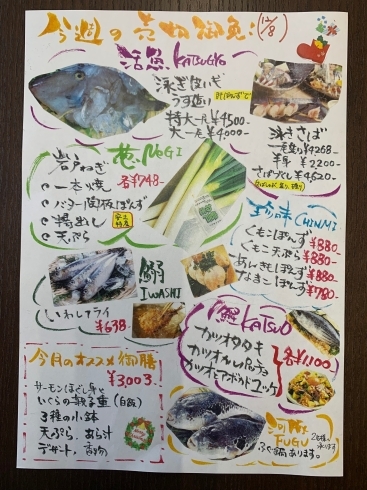 今週の売切御免! (12/8)
活魚 KATSUGYO
泳ぎ皮ハギ
うす造り
特大一尾 ¥4500
大一尾 ¥4000
泳ぎさば
一尾造り ¥4268-
半身 ¥2200-
さばづくし ¥4520-
葱 NEGI
岩戸ねぎ
一本焼
バター醤油ぽんず
揚出し
天ぷら
各¥748-
珍味 CHINMI
くもこぽんず ¥880-
くもこ天ぷら ¥880-
あんきもぽんず ¥880-
なまこぽんず ¥780-
鰯 IWASHI
いわしフライ
¥638-
鰹 KATSUO
カツオタタキ
カツオカルパッチョ
カツオとアボカドユッケ
各¥1100
今月のオススメ御膳
¥3,003-
サーモンほぐし身と
いくらの親子重(白飯)
3種の小鉢
天ぷら、あら汁
デザート、香物
河豚 FUGU
ふぐ鍋あります。